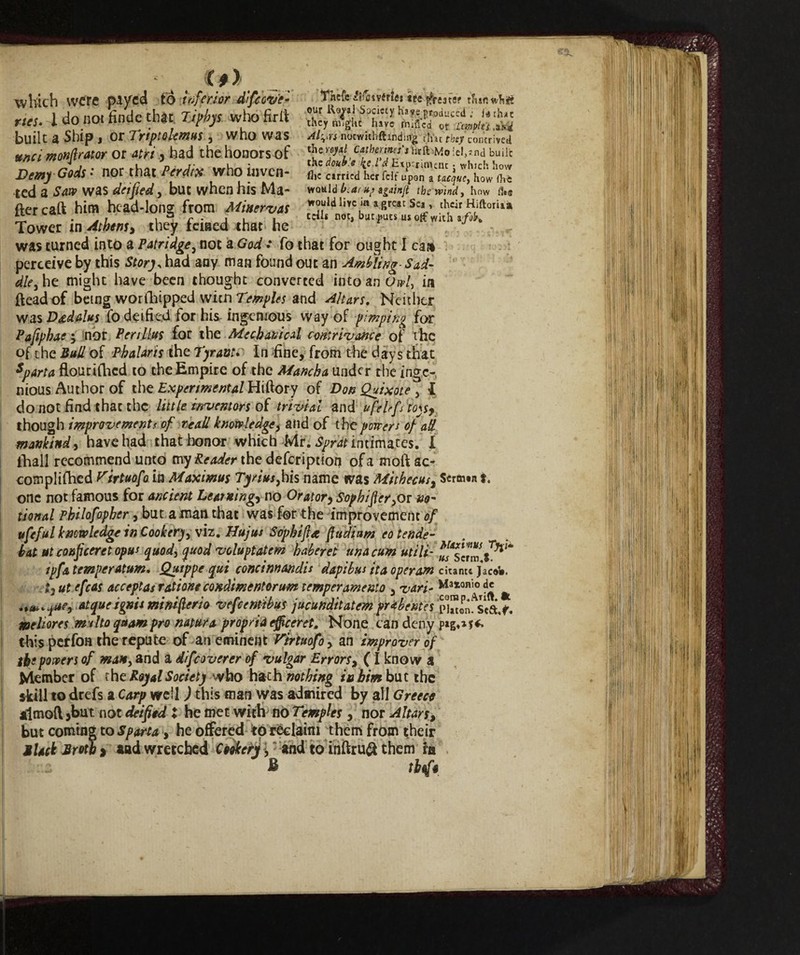 (9)
which were payed to inferior discove-
ries. I do not finde that Tiphys who first
built a Ship, or Triptolemus, who was
unci monstrator or atri, had the honors of
Demy Gods: nor that Perdix who inven-
ted a Saw was deified, but when his Ma-
ster cast him head-long from Minervas
Tower in Athens, they feined that he
was turned into a Patridge, not a God: so that for ought I can
perceive by this Story, had any man found out an Ambling-Sad-
dle, he might have been thought converted into an Owl, in
stead of being worshipped with Temples and Altars. Neither
was Dædalus so deified for his ingenious way of pimping for
Pasiphae; nor Perillus for the Mechanical contrivance of the
of the Bull of Phalaris the Tyrant. In fine, from the days that
Sparta flourished to the Empire of the Mancha under the inge-
nious Author of the Experimental History of Don Quixote, I
do not find that the little inventors of trivial and useless toys,
though improvements of reall knowledge, and of the powers of all
mankind, have had that honor which Mr. Sprat intimates. I
shall recommend unto my Reader the description of a most ac-
complished Virtuoso in Maximus Tyrius, his name was Mithecus,
one not famous for ancient Learning, no Orator, Sophister, or no-
tional Philosopher, but a man that was for the improvement of
useful knowledge in Cookery, viz. Hujus Sophistæ studium eo tende-
bat ut conficeret opus quod, quod voluptatem haberet una cum utili-
ipsa temperatum. Quippe qui concinnandis dapibus ita operam
ut escas acceptas ratione condimentorum temperamento, vari-
que, atque ignis ministerio vescentibus jucunditatem præbentes
meliores multo quam pro natura propriâ efficeret. None can deny
this person the repute of an eminent Virtuoso, an improver of
the powers of man, and a discoverer of vulgar Errors, (I know a
Member of the Royal Society who hath nothing in him but the
skill to dress a Carp well) this man was admired by all Greece
almost, but not deified: he met with no Temples, nor Altars,
but coming to Sparta, he offered to reclaim them from their
Black Broth, and wretched Cookery, and to instruct them in
B
those
These discoveries are greater than what
our Royal Society have produced: is that
they might have missed of Temples and
Altars notwithstanding that they contrived
the royal Catherines's first Model, and built
the double keel'd Experiment; which how
she carried her self upon a tacque, how she
would bear up against the wind, how she
would live in a great Sea, their Historian
tells not, but puts us off with a fob.
Serm*n *.
Maximus Tyri-
us Serm.*.
citante Jacob.
Mazonio de
comp. Arist. &
Platon. Sect.
pag.